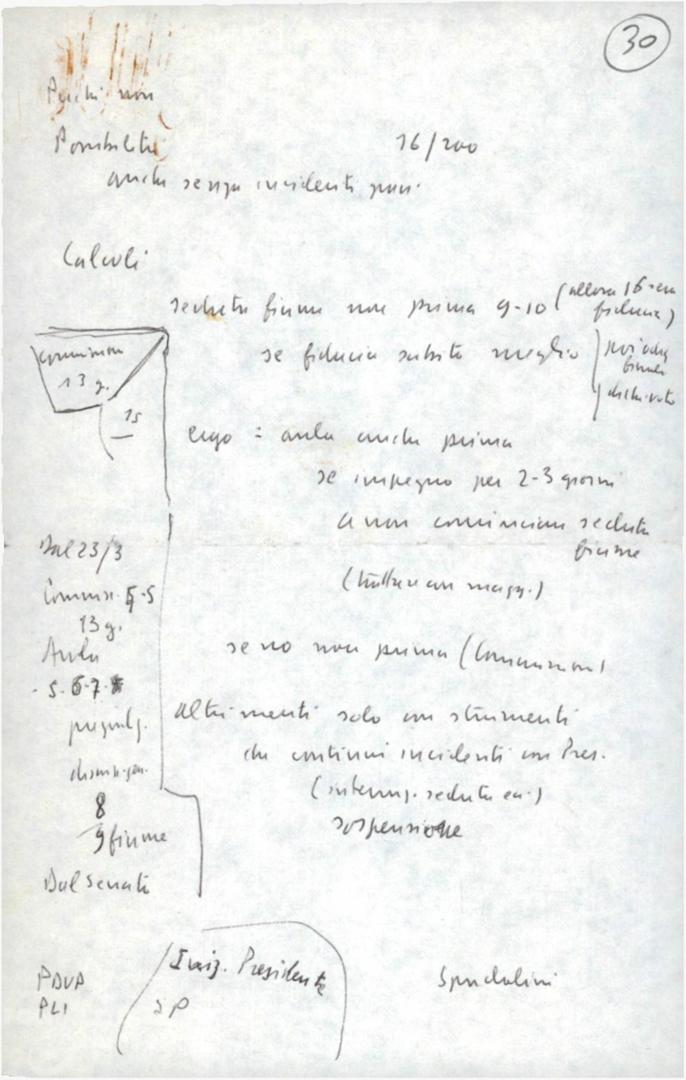 30
Perché non
Possibilità 16/200
anche senza incidenti gravi
Calcoli
seduta fiume non prima 9-10 (allora 16 con
fiducia)
se fiducia subito meglio
poi
fiume
dich. voto
commissione
13 g.
15
ergo = aula anche prima
se impegno per 2-3 giorni
a non cominciare seduta
fiume
(trattare con magg.)
se no non prima (Commissione)
altrimenti solo con strumenti
di continui incidenti con Pres.
(interruz. seduta ecc.)
sospensione
Dal 23/3
Commiss. 5
13 g.
Aula
5-6-7-8
pregiudiz.
discuss. gen.
8
9 fiume
Dal Senato
PDUP
PLI
Iniz. Presidente
Spadolini